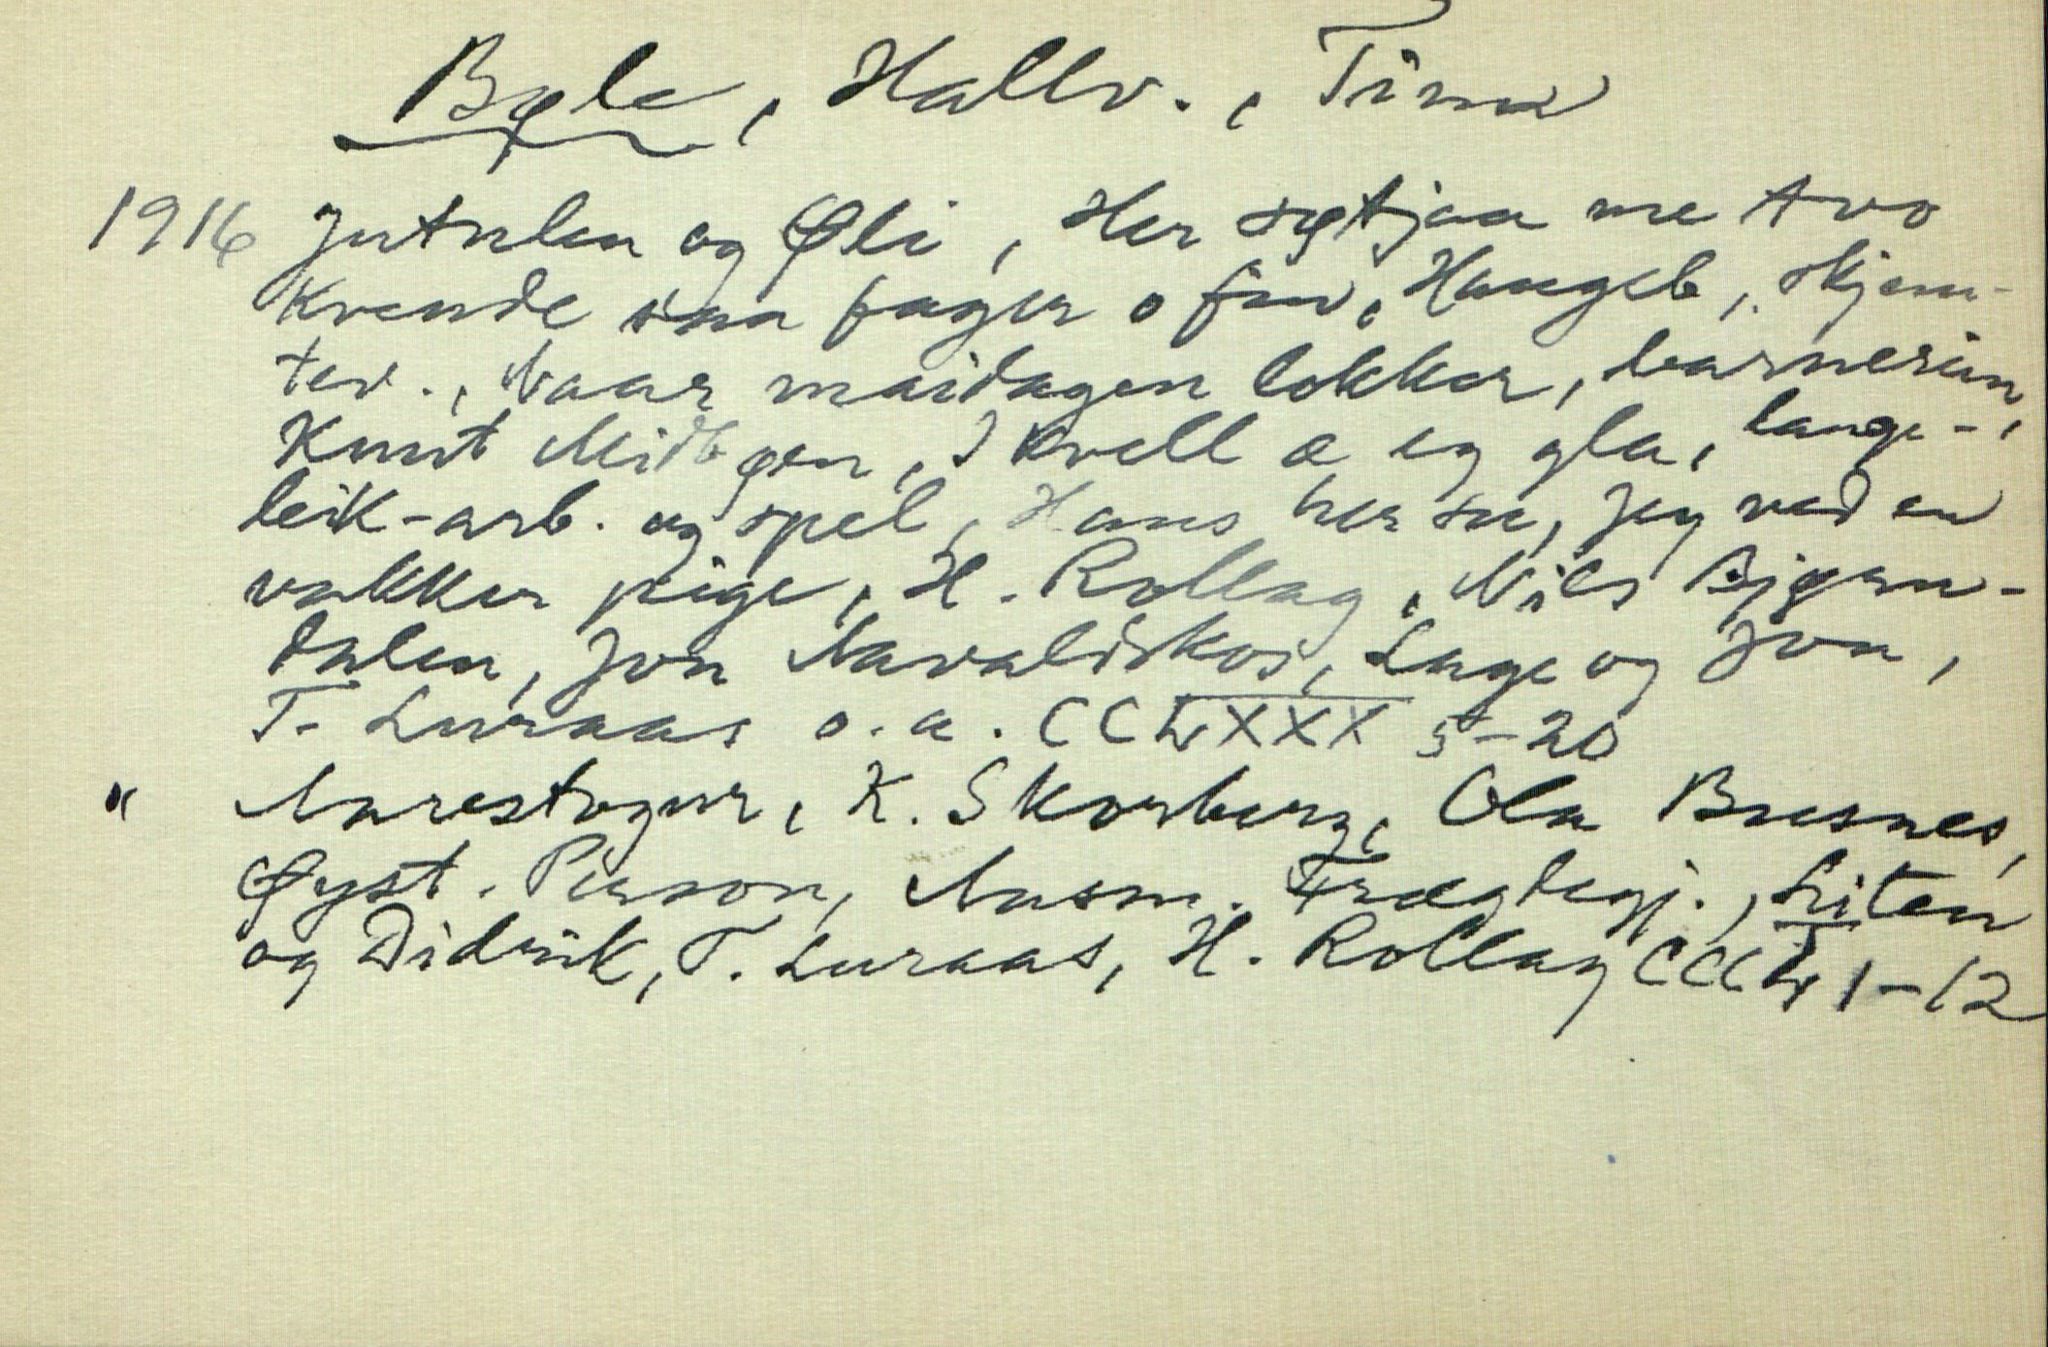 Bøle, Hallv., Tinn
1916 Jutulen og Øli, Her sytjaa me tvo
Kvende saa fager o fin, Haugeb, skjem-
tev., Naar maidagen lokker, barnerim,
Knut Midbøen, I kvell æ eg gla, lange-
leik-arb. og spel, Hans her su, Jeg ved en
vakker pige, H. Rollag, Nils Bjørn-
dalen, Jon Navaldskos, Lage og Jon,
T. Luraas o.a. CCLXXX 5-20
" Aarestogur, K. Skorberg, Ola Busnes,
Øyst. Person, Aasm. Frægdegj., Liten
og Didrik, T. Luraas, H. Rollag 1-12